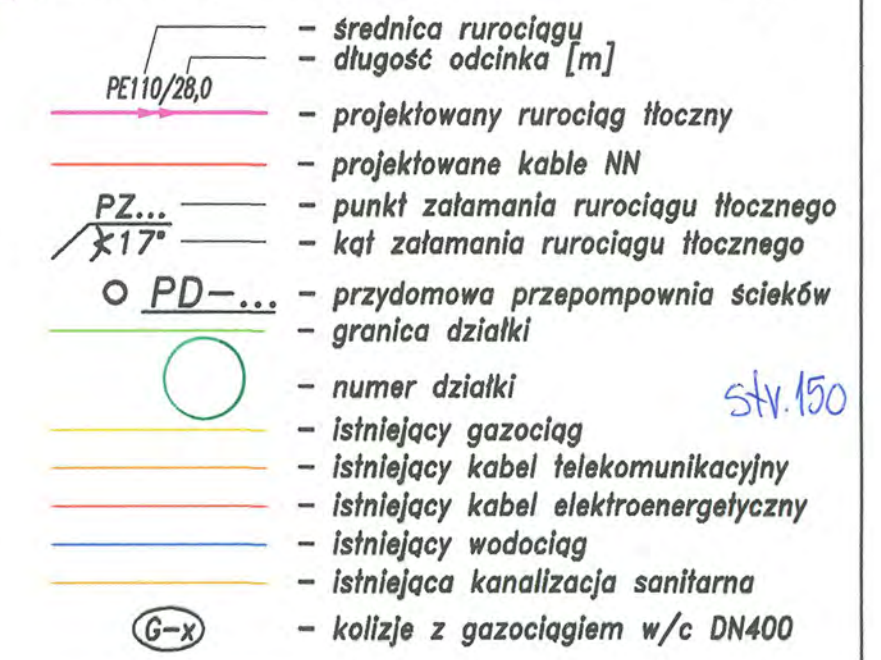 – średnica rurociągu
– długość odcinka [m]
PE110/28,0
– projektowany rurociąg tłoczny
– projektowane kable NN
PZ... – punkt załamania rurociągu tłocznego
∡17° – kąt załamania rurociągu tłocznego
PD–... – przydomowa przepompownia ścieków
– granica działki
– numer działki
str.150
– istniejący gazociąg
– istniejący kabel telekomunikacyjny
– istniejący kabel elektroenergetyczny
– istniejący wodociąg
– istniejąca kanalizacja sanitarna
G–x – kolizje z gazociągiem w/c DN400